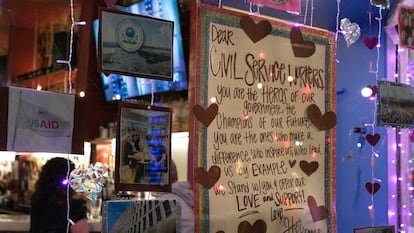 Dear
Civil Service Workers
you are the Heros of our
government, the
Champions of our Future
you are the ones who make a
difference, who inspire us
by EXAMPLE
We Stand w/ you & offer our
LOVE and SUPPORT!
LOVE,
USAID